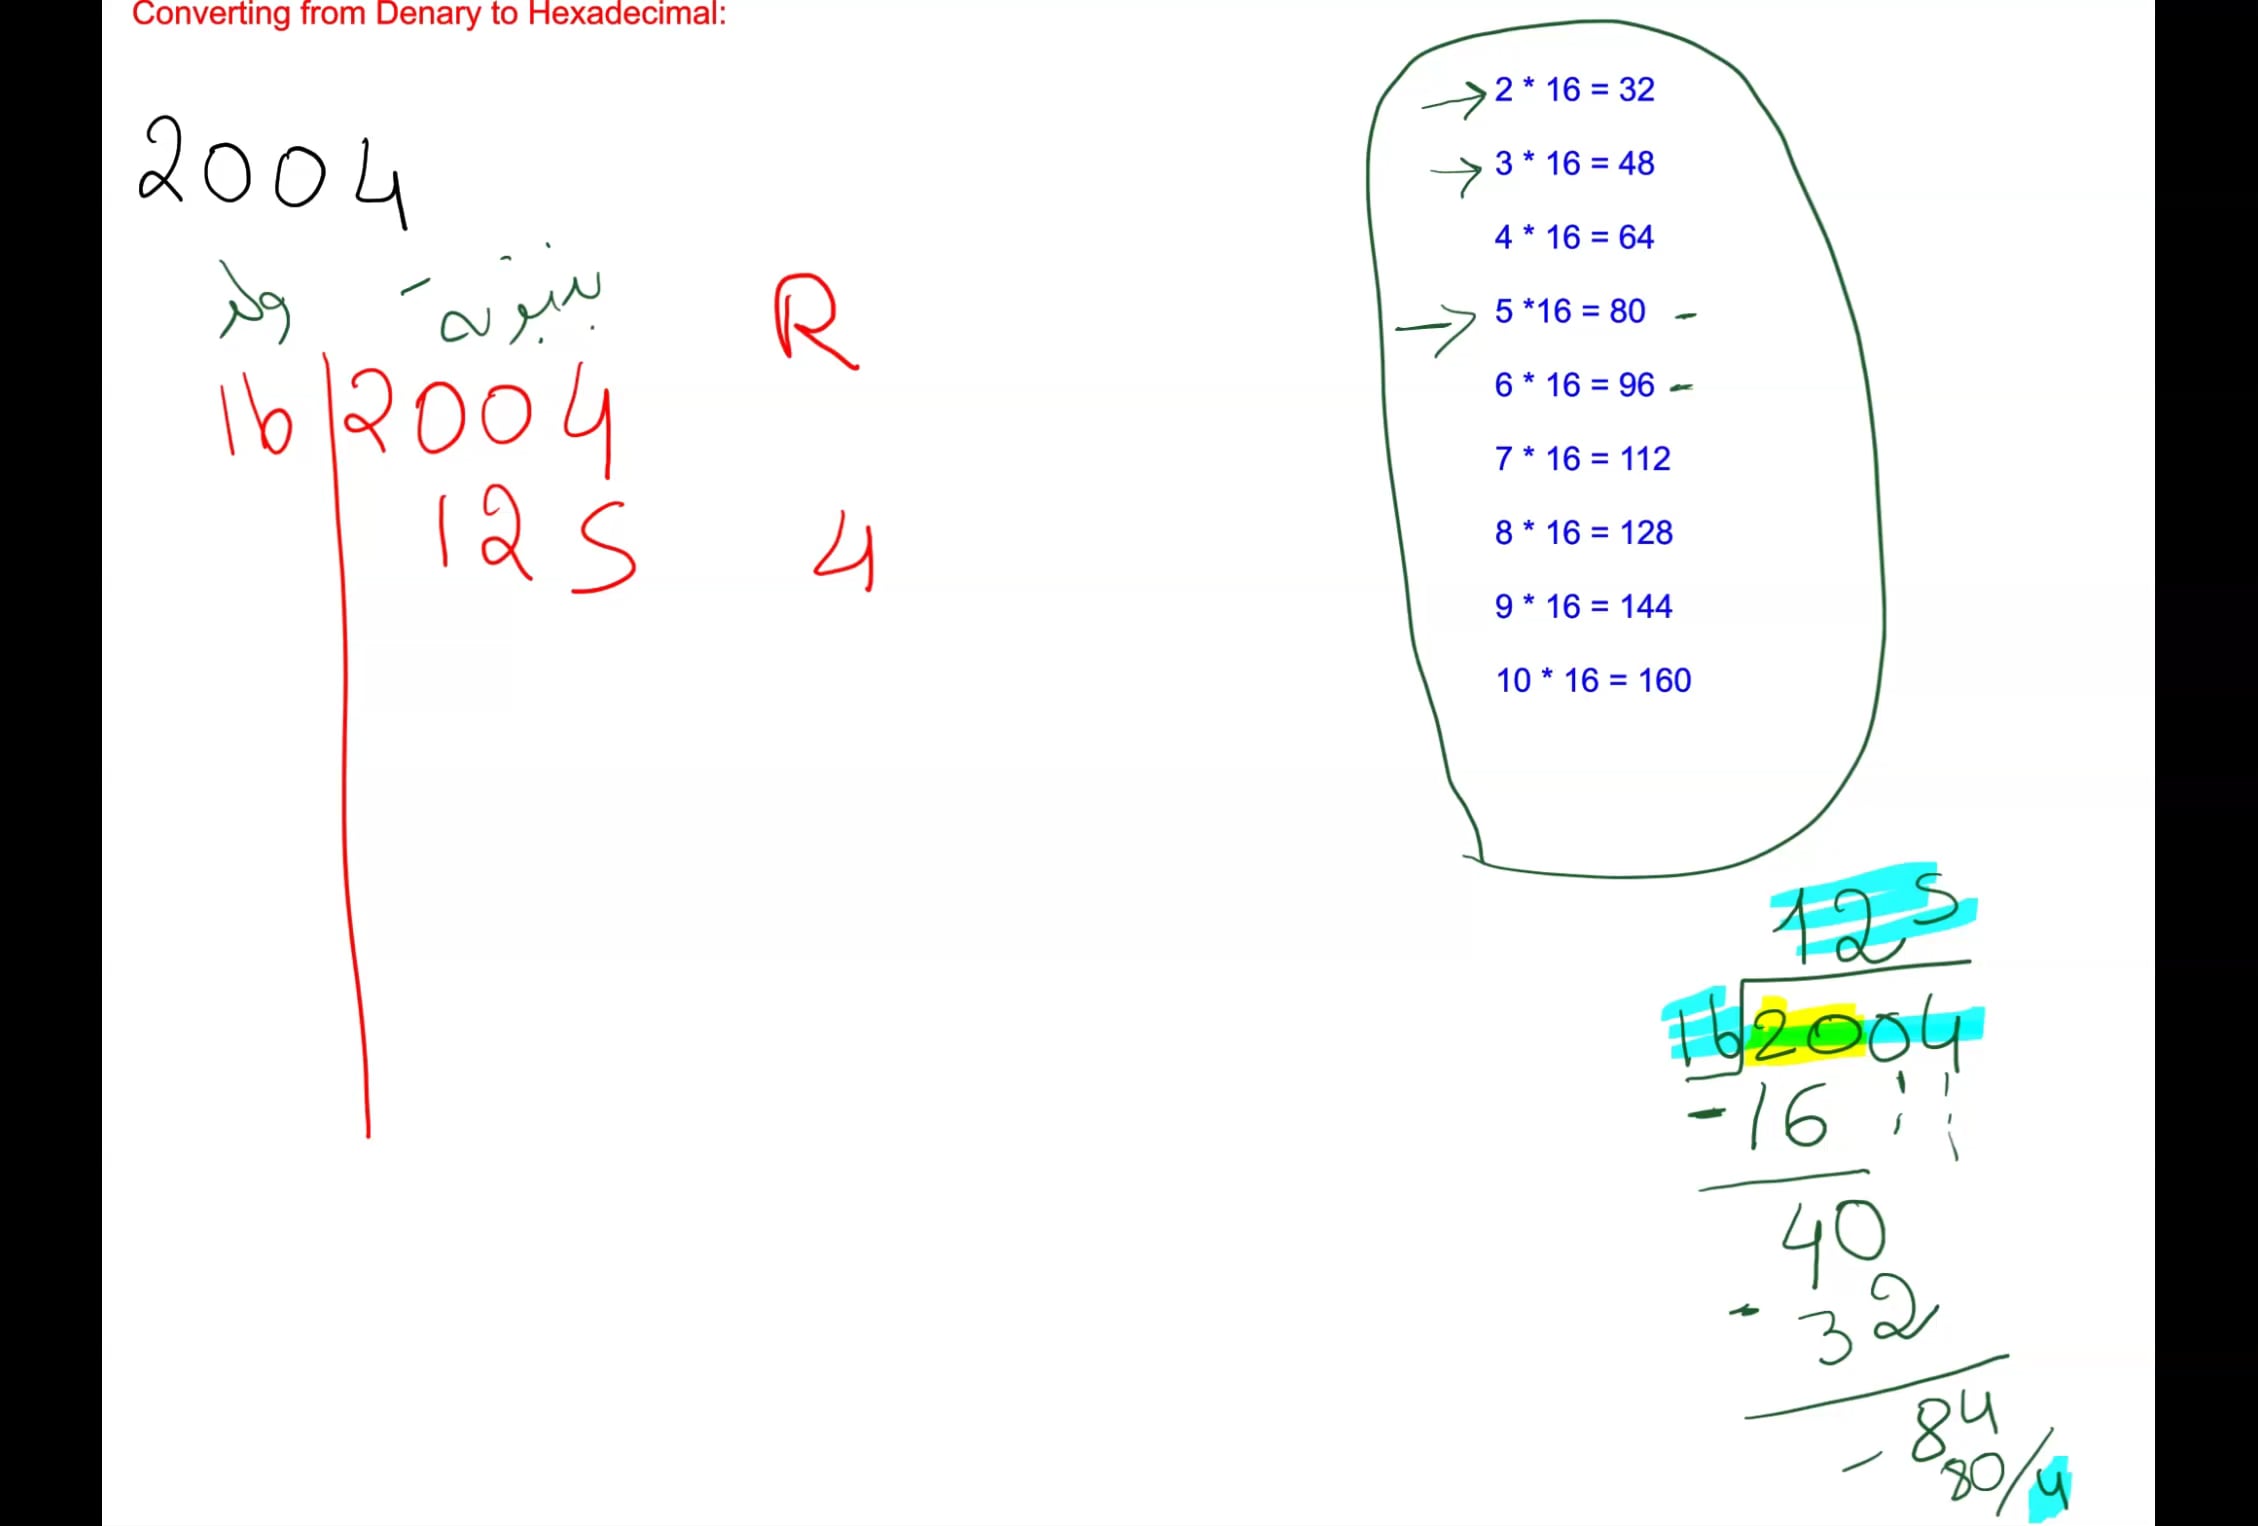 Converting from Denary to Hexadecimal:
2004
R
16 2004
125 4
2 * 16 = 32
3 * 16 = 48
4 * 16 = 64
5 *16 = 80 -
6 * 16 = 96 -
7 * 16 = 112
8 * 16 = 128
9 * 16 = 144
10 * 16 = 160
125
16 2004
-16
40
- 32
84
- 80/4